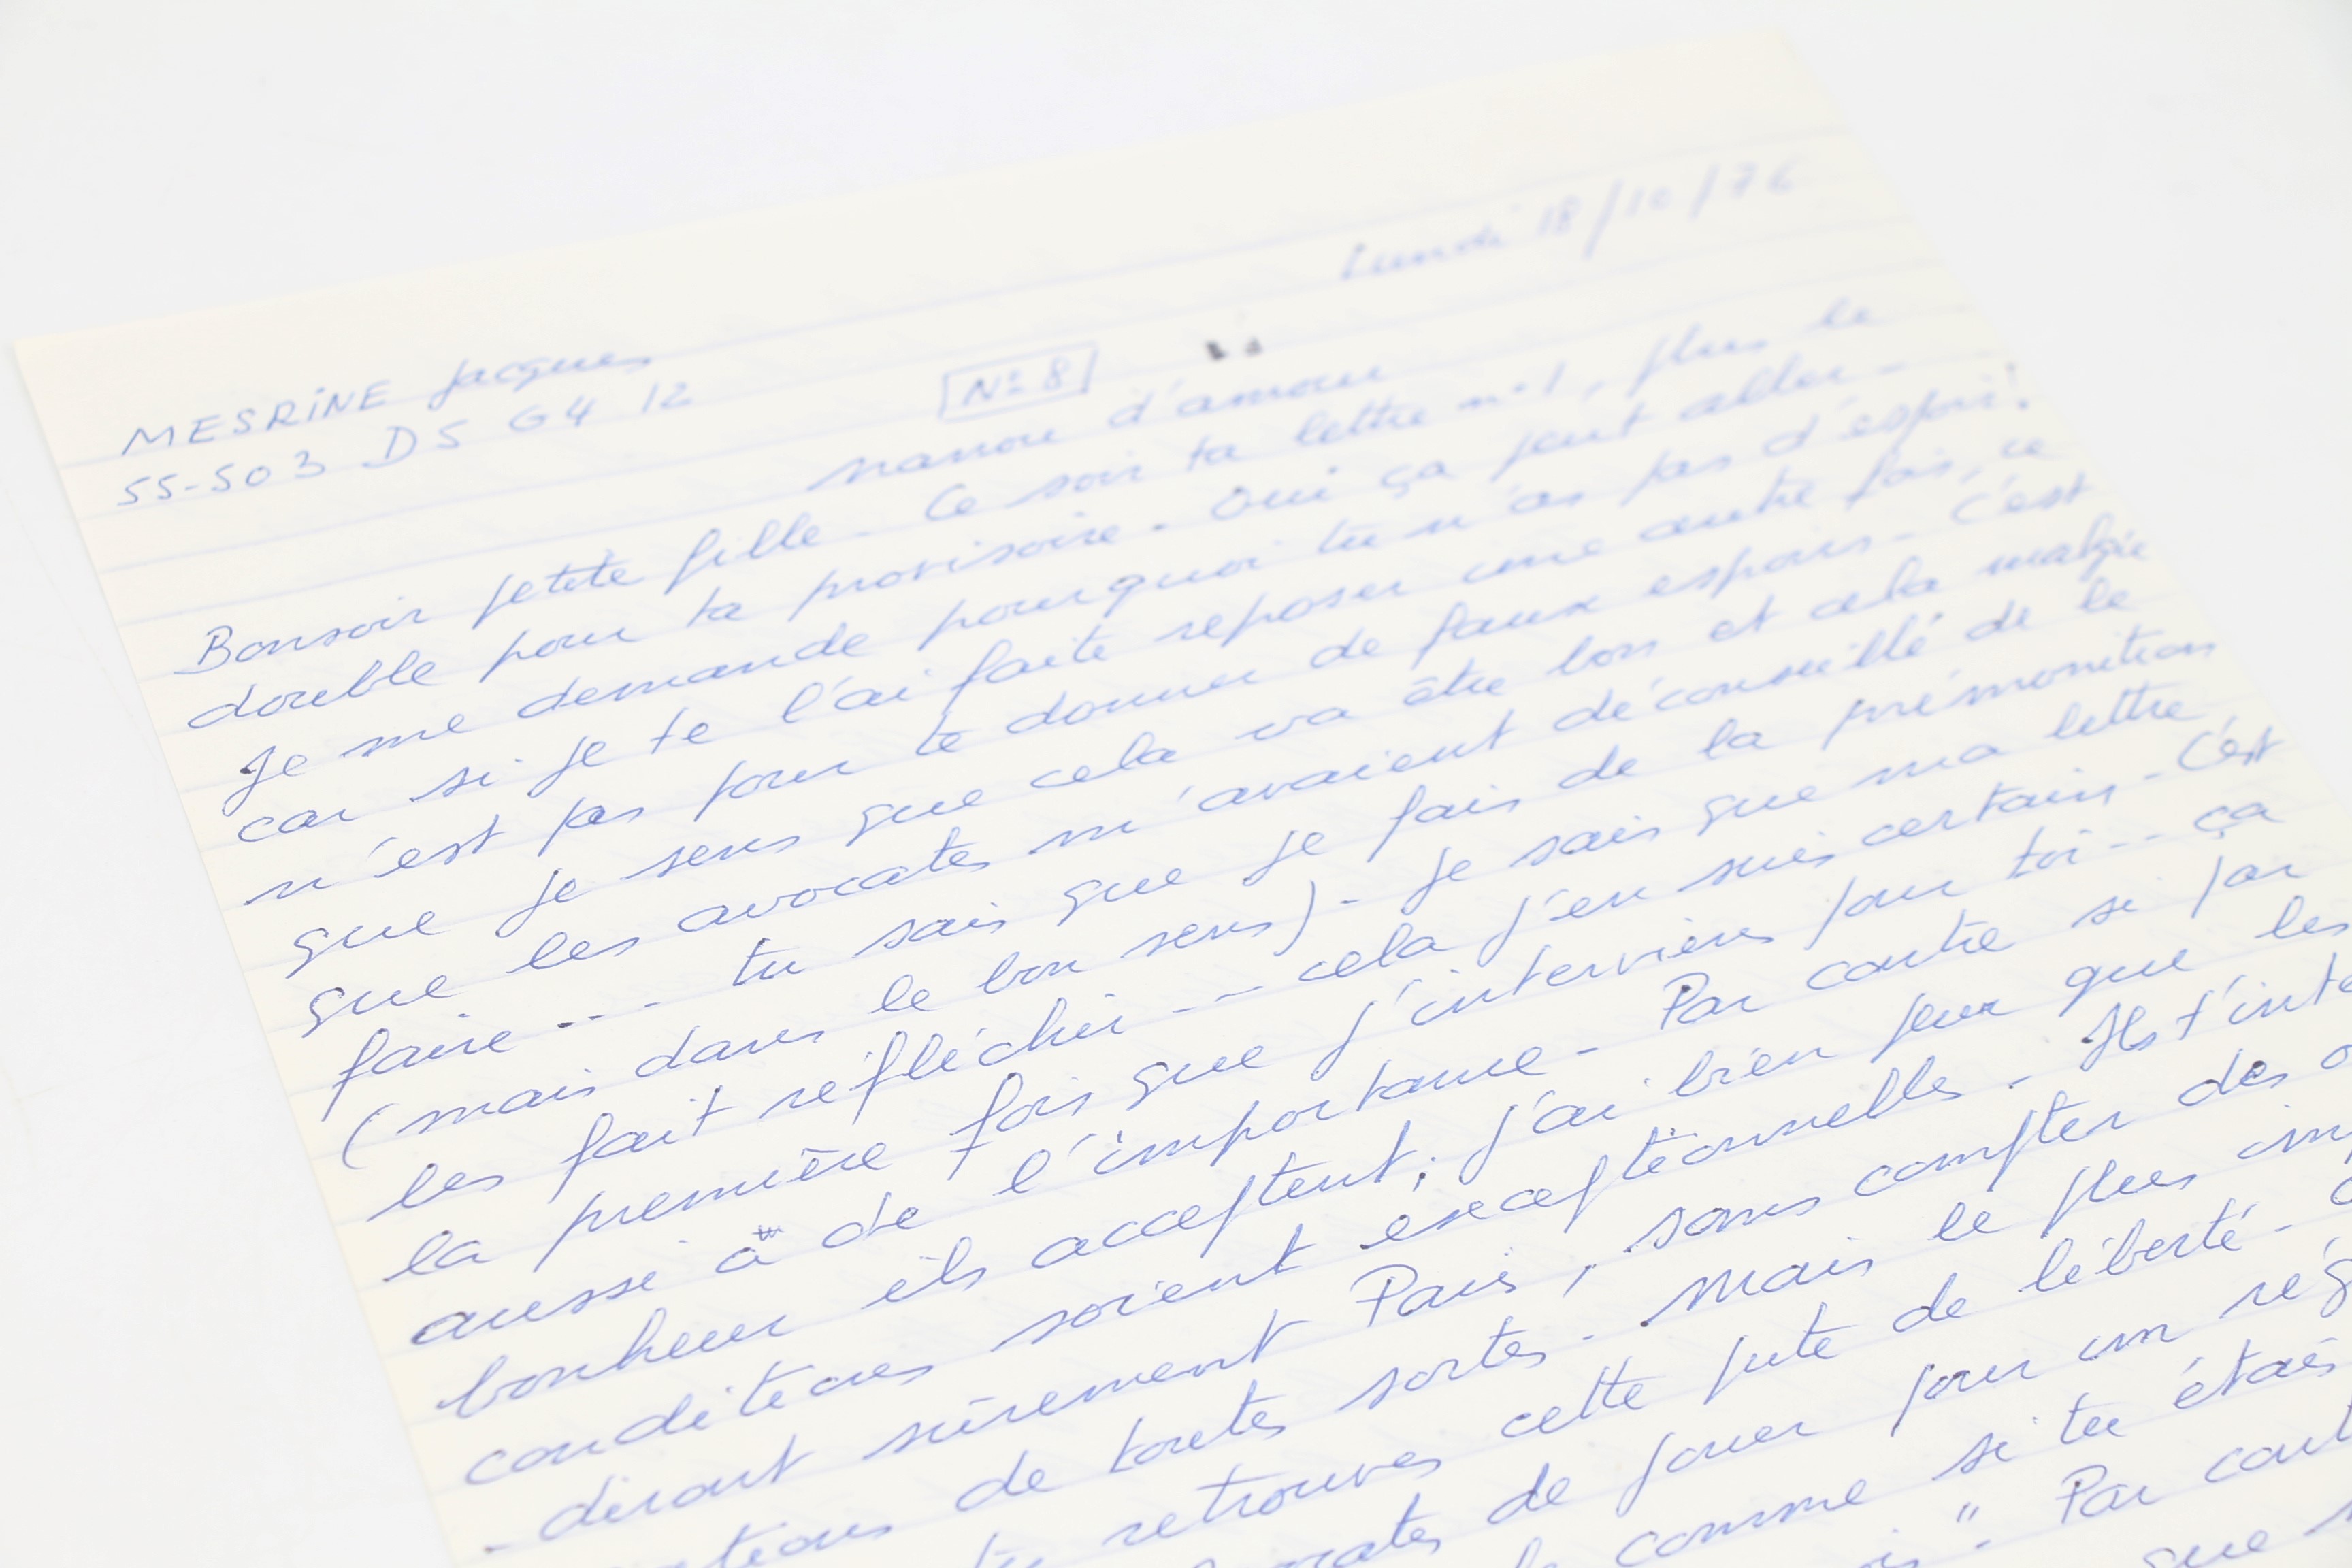 Lundi 18/10/76
MESRINE Jacques
55-503 D5 G4 12
N° 8
nanou d'amour
Bonsoir petite fille - Ce soir ta lettre n°1, plus le
double pour ta provisoire. Oui ça peut aller -
Je me demande pourquoi tu n'as pas d'espoir!
car si je te l'ai faite reposer une autre fois, ce
n'est pas pour te donner de faux espoirs - C'est
que je sens que cela va être bon et cela malgré
que les avocates m'avaient déconseillé de le
faire... - tu sais que je fais de la prémonition
(mais dans le bon sens) - Je sais que ma lettre
les fait réfléchir -- cela j'en suis certain - C'est
la première fois que j'interviens pour toi -- ça
aussi à de l'importance - Par contre si par
bonheur ils acceptent; j'ai bien peur que les
conditions soient exceptionnelles - Ils t'inte
- diront sûrement Paris, sans compter des o
ctions de toutes sortes - Mais le plus imp
tu retrouves cette pute de liberté - C
cates de jouer pour un rég
comme si tu étais
". Par cont
que